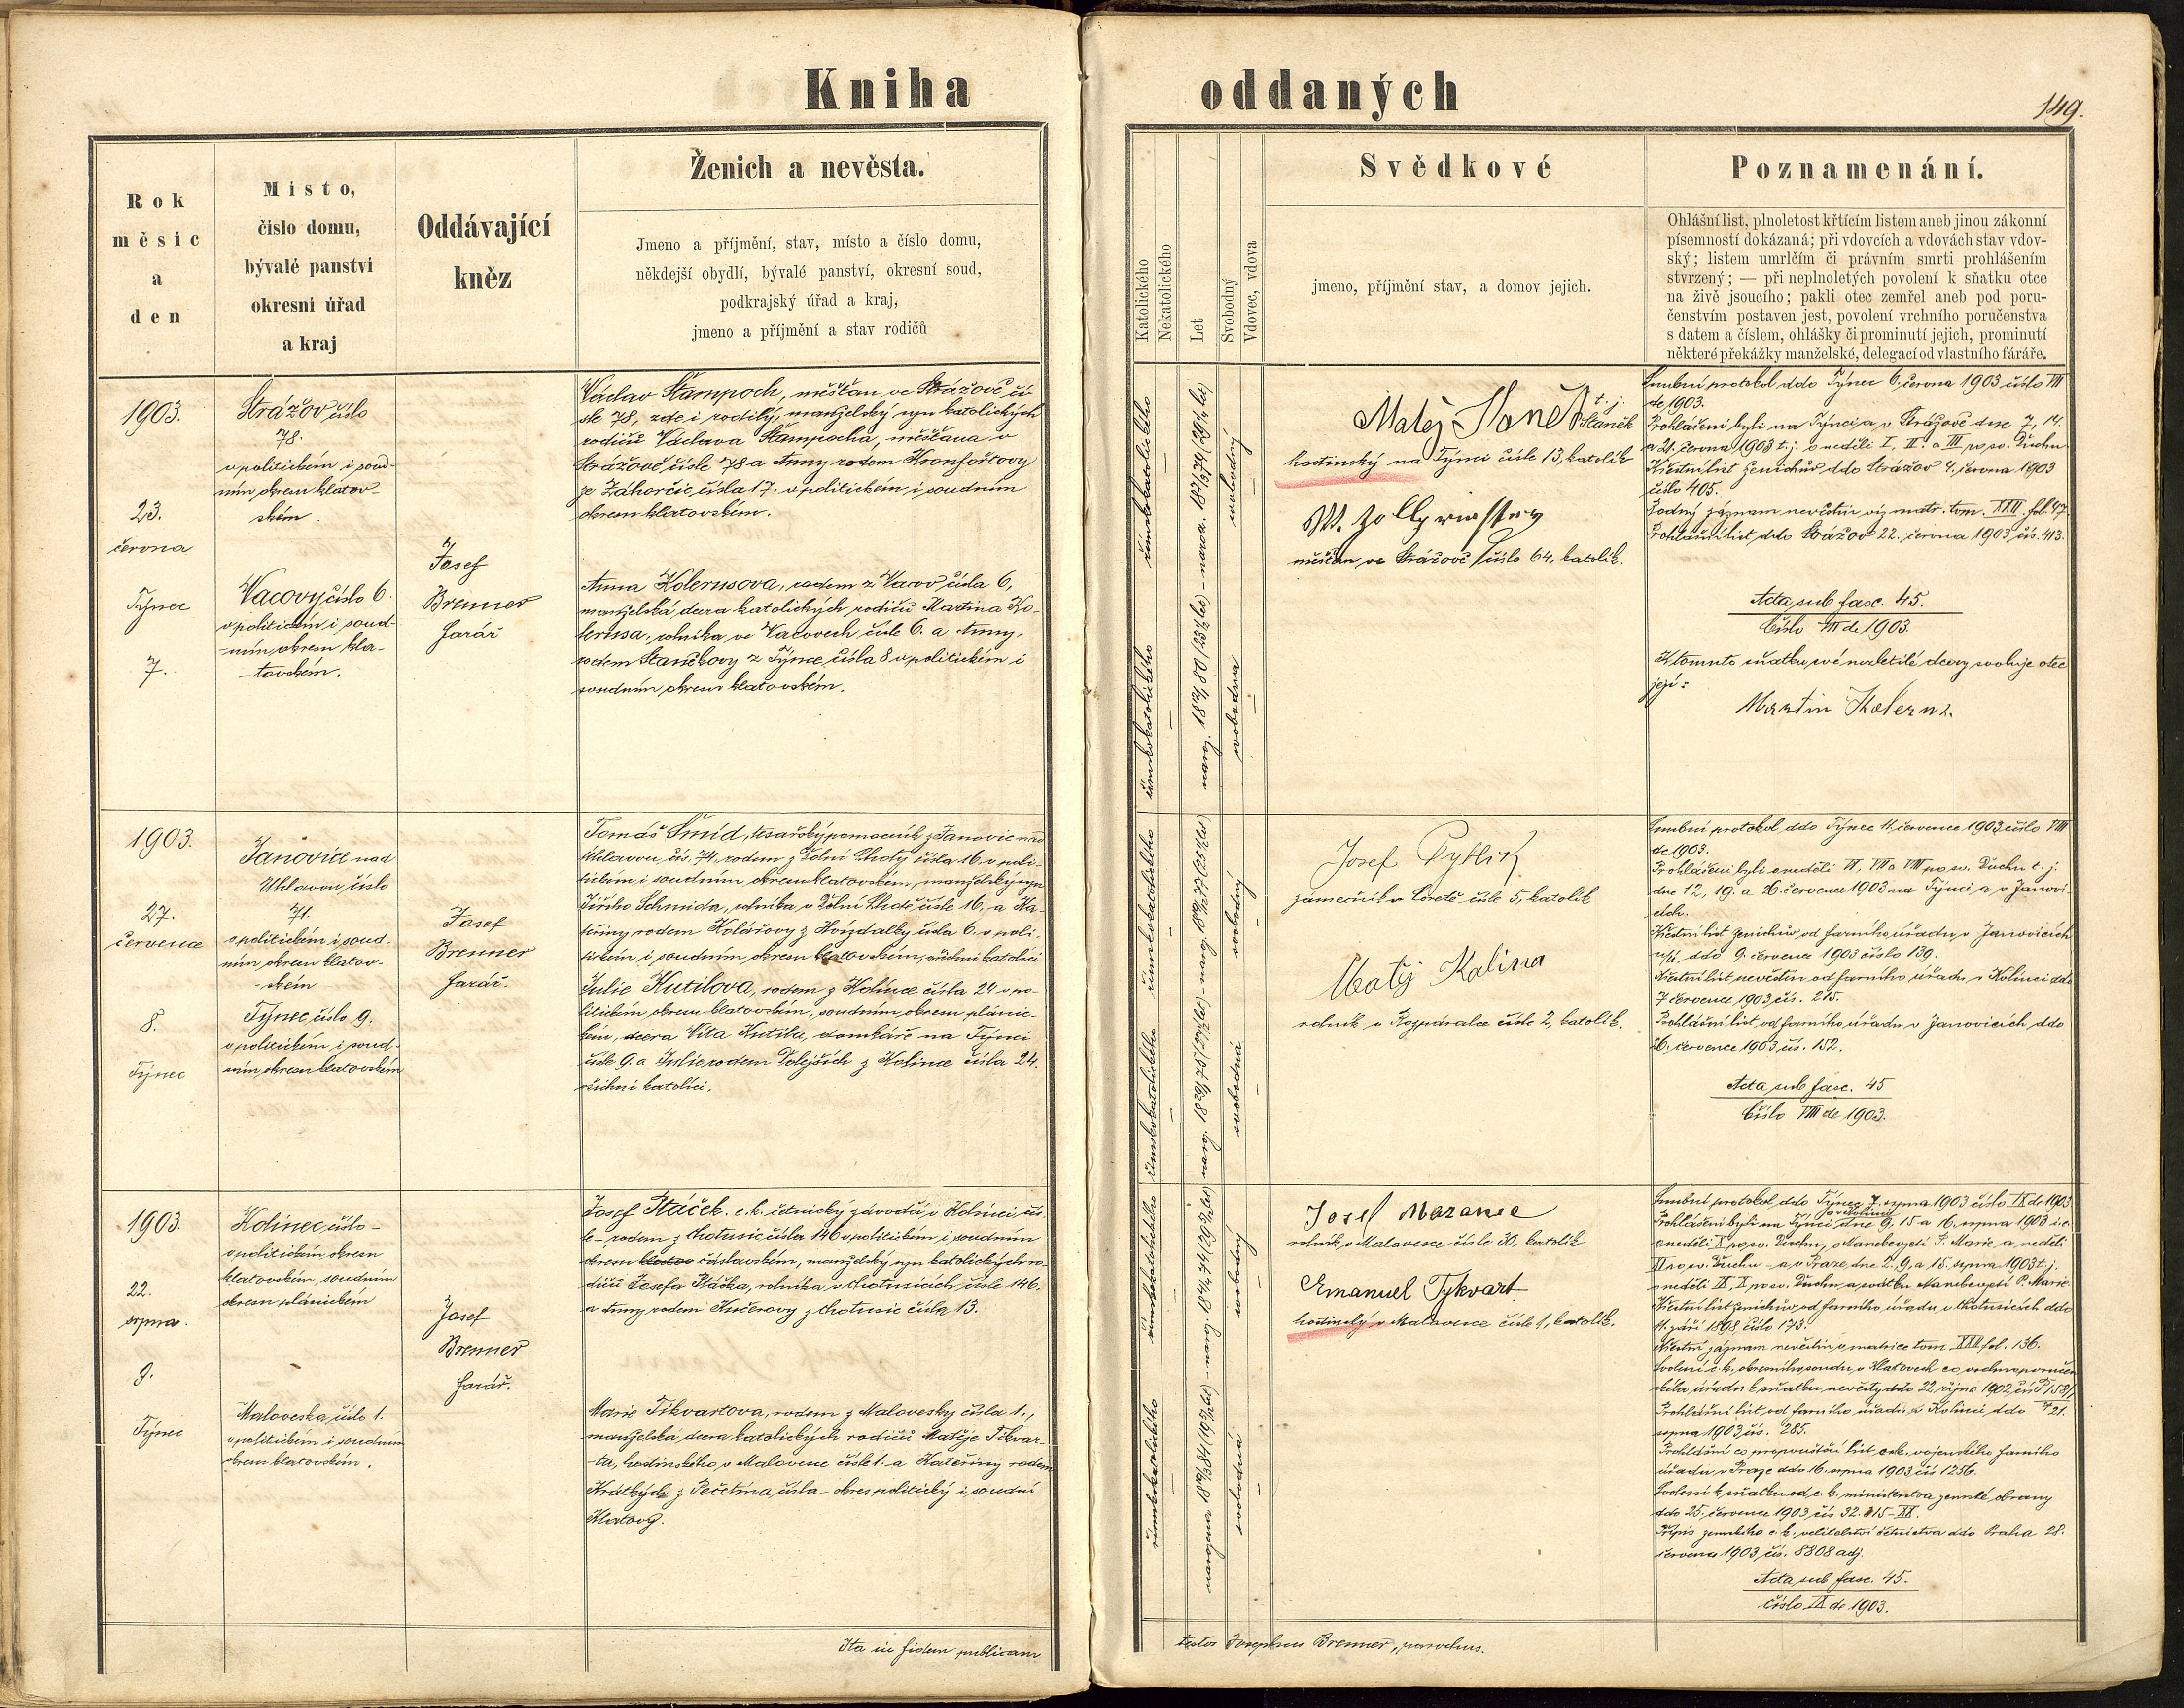 Kniha oddaných
149.
Rok
měsíc
a
den
Místo,
číslo domu,
bývalé panství
okresní úřad
a kraj
Oddávající
kněz
Ženich a nevěsta.
Jmeno a příjmění, stav, místo a číslo domu,
někdejší obydlí, bývalé panství, okresní soud,
podkrajský úřad a kraj,
jmeno a příjmění a stav rodičů
Katolického
Nekatolického
Let
Svobodný
Vdovec, vdova
Svědkové
jmeno, příjmění stav, a domov jejich.
Poznamenání.
Ohlášní list, plnoletost křtícím listem aneb jinou zákonní
písemností dokázaná; při vdovcích a vdovách stav vdov-
ský; listem umrlčím či právním smrti prohlášením
stvrzený; — při neplnoletých povolení k sňatku otce
na živě jsoucího; pakli otec zemřel aneb pod poru-
čenstvím postaven jest, povolení vrchního poručenstva
s datem a číslem, ohlášky či prominutí jejich, prominutí
některé překážky manželské, delegací od vlastního fáráře.
1903.
23.
června
Týnec
7.
Strážov číslo
78.
v politickém i soud-
ním okresu klatov-
ském.
Vacovy číslo 6.
v politickém i soud-
ním okresu kla-
tovském.
Josef
Brenner
farář
Václav Štampoch, měšťan ve Strážově čí-
sle 78, zde i rodilý, manželský syn katolických
rodičů Václava Štampocha, měšťana v
Strážově čísle 78 a Anny rodem Kronfořtovy
ze Záhorčic čísla 17. v politickém i soudním
okresu klatovském.
Anna Kolerusova, rodem z Vacov čísla 6,
manželská dcera katolických rodičů Martina Ko-
lerusa, rolníka ve Vacovech čísle 6. a Anny,
rodem Staňkovy z Týnce čísla 8 v politickém i
soudním okresu klatovském.
římskokatolického
římskokatolického
svobodný
svobodná
Matěj Slaněk t. j. Slaněk
hostinský na Týnci čísle 13, katolík
měšťan ve Strážově číslo 64, katolík.
Smluvní protokol ddo Týnec 6. června 1903 číslo VII
de 1903.
Prohlášeni byli na Týnci a v Strážově dne 7, 14.
a 21. června 1903 t. j. v neděli I, II. a III po sv. Duchu
Křestní list ženichův ddo Strážov 4. června 1903
číslo 405.
Rodný záznam nevěstin viz matr. tom. XXII. fol. 47.
Prohlášní list ddo Strážov 22. června 1903 čís. 413.
Acta sub fasc. 45.
Číslo VII de 1903.
K tomuto sňatku své nezletilé dcery svoluje otec
její:
Martin Kolerus.
1903.
27.
července
8.
Týnec
Janovice nad
Úhlavou číslo
74.
v politickém i soud-
ním okresu klatov-
ském
Týnec číslo 9.
v politickém i soud-
ním okresu klatovském
Josef
Brenner
farář.
Tomáš Šmíd, tesařský pomocník z Janovic nad
Úhlavou, čís. 74, rodem z Dolní Lhoty čísla 16. v poli-
tickém i soudním okresu klatovském, manželský syn
Jiřího Schmida, rolníka v Dolní Lhotě čísle 16. a Ka-
teřiny rodem Kolářovy z Hvízdalky čísla 6. v poli-
tickém i soudním okresu klatovském, všichni katolíci
Julie Kutilova, rodem z Kolince čísla 24 v po-
litickém okresu klatovském, soudním okresu plánic-
kém, dcera Víta Kutila, domkáře na Týnci
čísle 9. a Julie rodem Dolejších z Kolince čísla 24.
všichni katolíci.
římskokatolického
římskokatolického
svobodný
svobodná
Josef Pytlík
zámečník v Loretě čísle 5, katolík
Matěj Kalina
rolník v Rozpáralce čísle 2, katolík.
Smluvní protokol ddo Týnec 11. července 1903 číslo VIII
de 1903.
Prohlášeni byli v neděli VI, VII a VIII po sv. Duchu t. j.
dne 12, 19. a 26. července 1903 na Týnci a v Janovi-
cích.
Křestní list ženichův od farního úřadu v Janovicích
n/ú. ddo 9. července 1903 číslo 139.
Křestní list nevěstin od farního úřadu v Kolinci ddo
7 července 1903 čís. 215.
Prohlášní list od farního úřadu v Janovicích ddo
26. července 1903 čís. 152.
Acta sub fasc. 45
Číslo VIII de 1903.
1903.
22.
srpna.
9.
Týnec
Kolinec číslo -
v politickém okresu
klatovském, soudním
okresu plánickém
Maloveska číslo 1.
v politickém i soudním
okresu klatovském.
Josef
Brenner
farář.
Josef Ptáček, c. k. četnický závodčí v Kolinci čís-
le - rodem z Chotusic čísla 146 v politickém i soudním
okresu čáslavském, manželský syn katolických ro-
dičů Josefa Ptáčka, rolníka v Chotusicích čísle 146.
a Anny rodem Kučerovy z Chotusic čísla 13.
Marie Tikvartova, rodem z Malovesky čísla 1.,
manželská dcera katolických rodičů Matěje Tikvar-
ta, hostinského v Malovesce čísle 1. a Kateřiny rodem
Krátkých z Pečetína čísla - okres politický i soudní
Klatovy.
římskokatolického
římskokatolického
svobodný
svobodná
Josef Mazanec
rolník v Malovesce čísle 30, katolík
Emanuel Tykvart
hostinský v Malovesce čísle 1, katolík.
Smluvní protokol ddo Týnec 7. srpna 1903 číslo IX de 1903
Křestní list ženichův od farního úřadu v Chotusicích ddo
11. září 1898 číslo 173.
Křestní záznam nevěstin v matrice tom. XXII fol. 136.
Prohlášní list od farního úřadu v Kolinci ddo 21.
srpna 1903 čís. 285.
úřadu v Praze ddo 16. srpna 1903 čís 1256.
Svolení k sňatku od c. k. ministerstva zemské obrany
ddo 25. července 1903 čís 32.315-XX.
Přípis zemského c. k. velitelství četnictva ddo Praha 28.
července 1903 čís. 8308 adj.
Acta sub fasc. 45.
Číslo IX de 1903.
Ita in fidem publicam
testor Josephus Brenner, parochus.